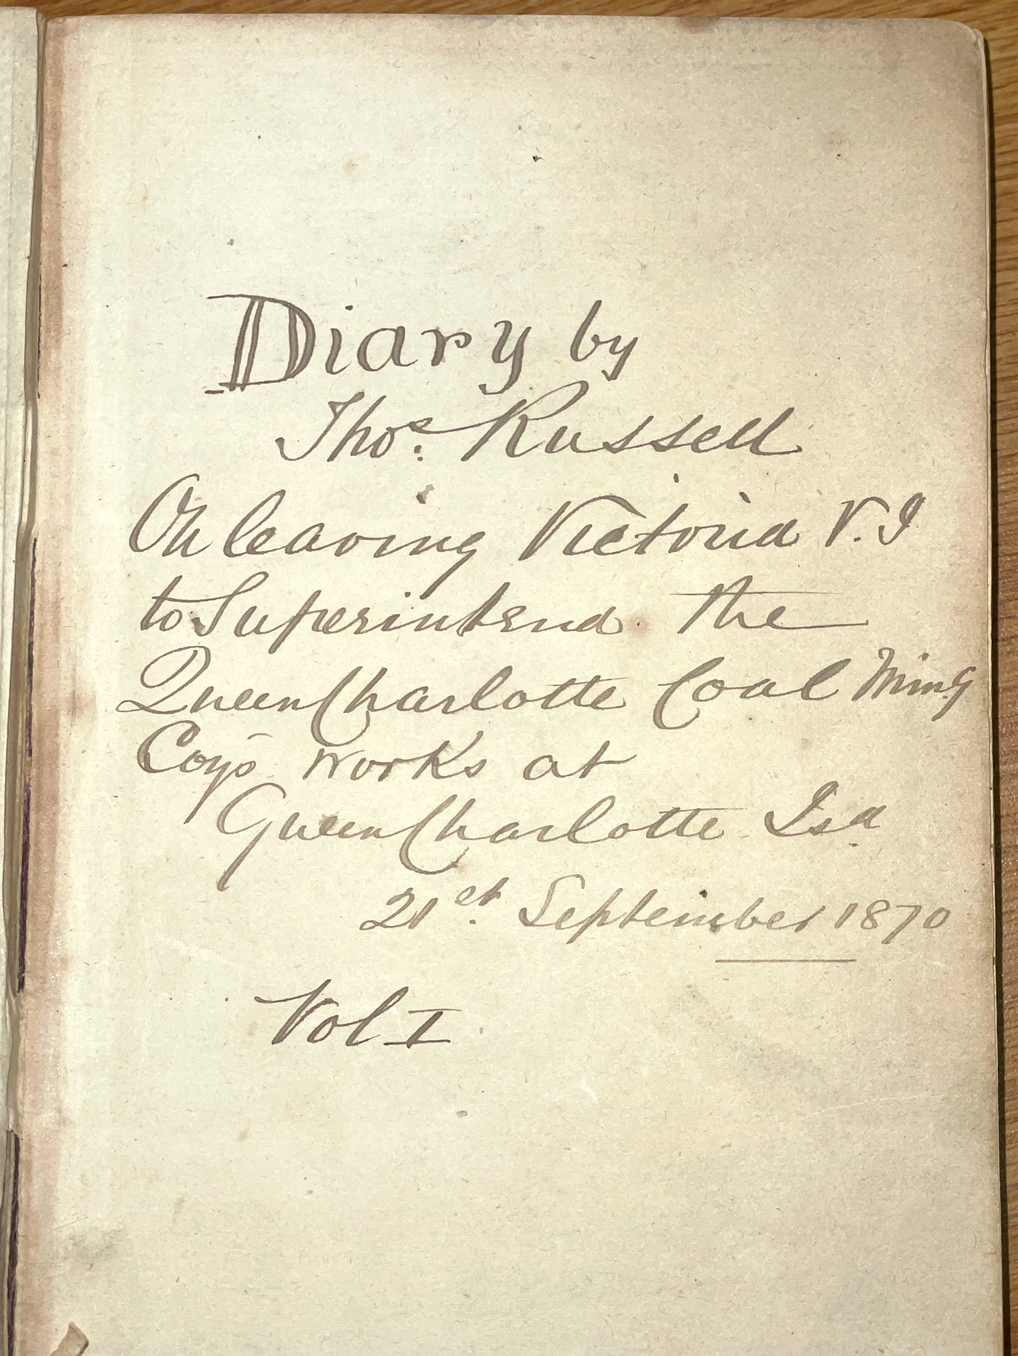 Diary by
Thos. Russell
On leaving Victoria V.I
to Superintend the
Queen Charlotte Coal Ming
Coy's works at
Queen Charlotte Isd
21st. September 1870
Vol I